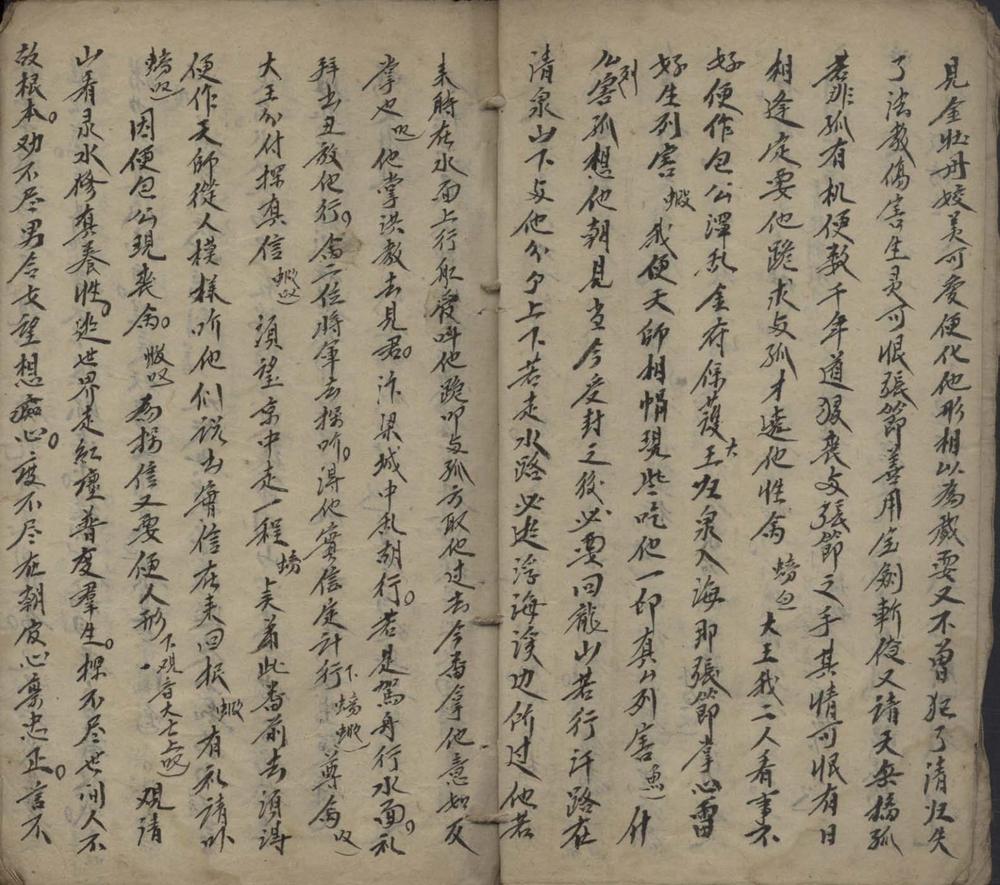 見金牡丹姣美可愛便化他形相以為戲耍又不曾犯了清归失
了法教傷害生灵可恨張節善用宝劍斬伩又請天兵擒孤
若非孤有机便数千年道狠丧与張節之手其情可恨有日
相逢定要他跪求与孤才遶他性命 螃白 大王我二人看事不
好便作包公渾乱金府保護大王归泉入海那張節掌心雷
好生列害 蝦 我便天師相帽現些吃他一印真真列害 魚 什
么列害孤想他朝見当今受封之後必要回龍山若行汗路在
清泉山下与他分个上下若走水路必逃浮海溪边所过他若
来時在水面上行舡管叫他跪叩与孤方取他过去今畨拿他意如反
掌也 叹 他掌洪教去見君。汴梁城中乱胡行。若是駕舟行水面。礼
拜出丑放他行。命二位將軍去探听。得他實信定計行 下螃蝦叹 尊命
大王分付探真信 蝦叹 須望京中走一程 螃 吴着此畨前去須得
便作天師從人模樣听他们說出實信在来回报 蝦 有礼請叭
螃叹 因便包公現丧命。 蝦叹 為探信又要便人形 下观音大士上叹 观請
山看录水修真养性。逃世界走紅塵普度羣生。探不尽世间人不
故根本。劝不尽男合女望想痴心。度不尽在朝宦心棄忠正。言不